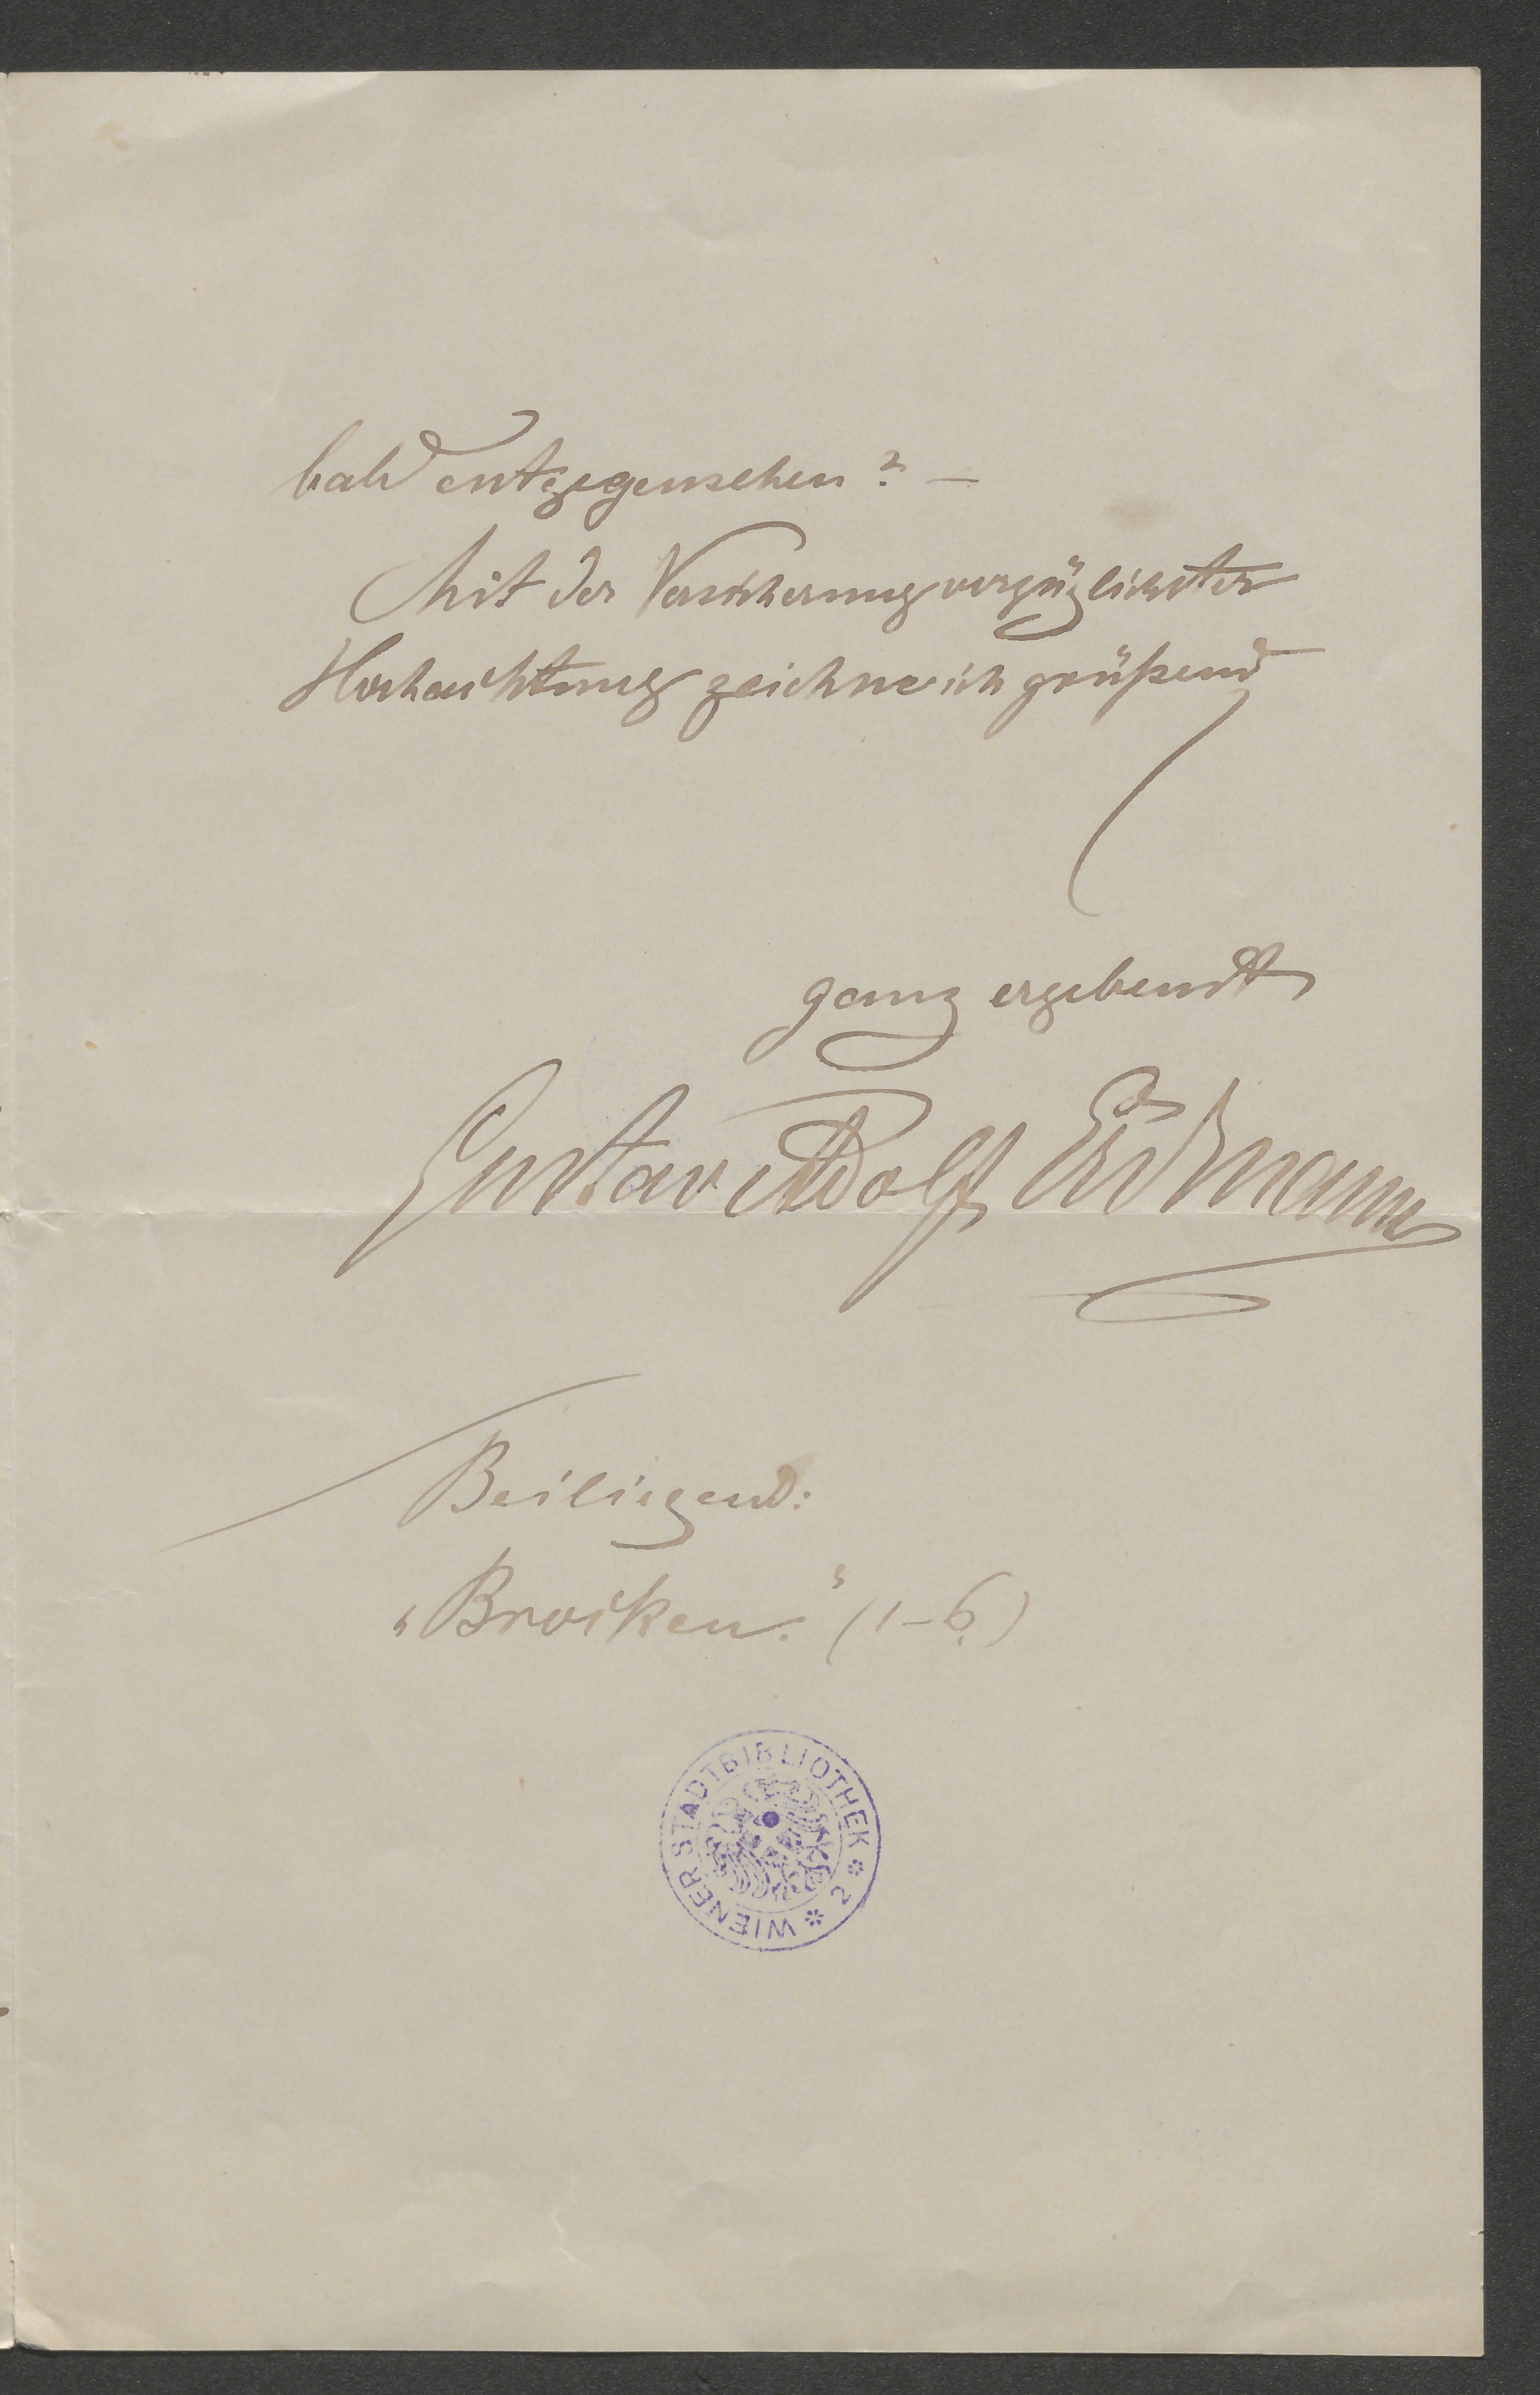 bald entgegensehen? —
Mit der Versicherung vorzüglichster
Hochachtung zeichne ich grüßend
ganz ergebenst
Gustav Adolf Erdmann
Beiliegend:
„Brocken.“ (1–6.)
WIENER STADTBIBLIOTHEK * 2 *